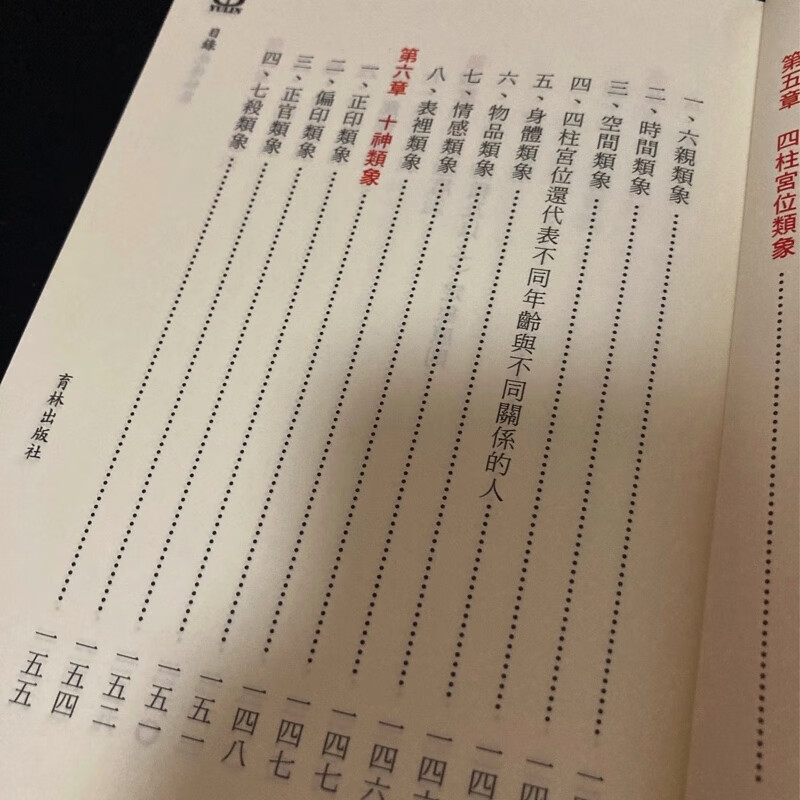 第五章 四柱宮位類象
一、六親類象
二、時間類象
三、空間類象
四、四柱宮位還代表不同年齡與不同關係的人
五、身體類象
六、物品類象
七、情感類象 一四七
八、表裡類象 一四八
第六章 十神類象 一五一
一、正印類象 一五一
二、偏印類象 一五二
三、正官類象 一五四
四、七殺類象 一五五
YULIN
目錄
育林出版社